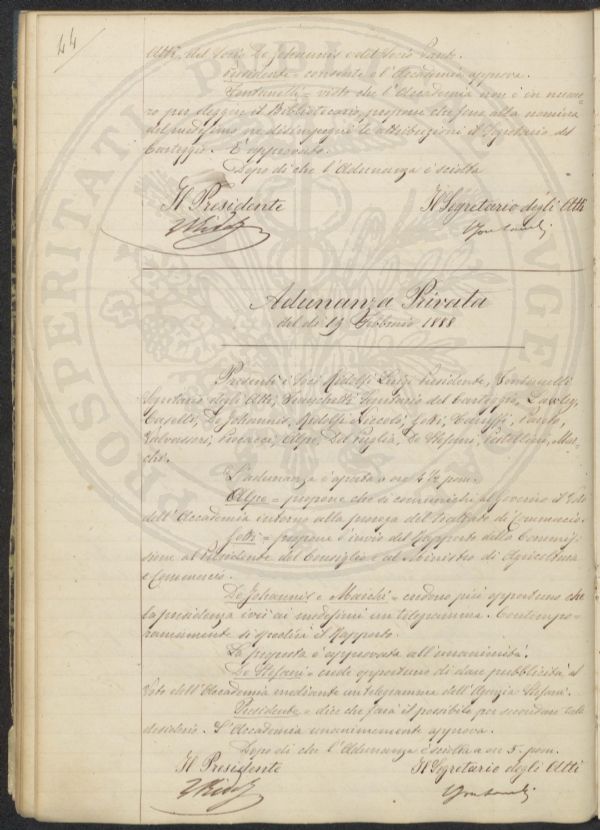 44
Atti, del Socio De Johannis e del Socio Ponti.
Presidente = consente e l'Accademia approva.
Fontanelli = visto che l'Accademia non è in nume-
ro per eleggere il Bibliotecario, propone che fino alla nomina
del medesimo ne disimpegni le attribuzioni il Segretario del
Carteggio. È approvato.
Dopo di che l'Adunanza è sciolta
Il Presidente Il Segretario degli Atti
Adunanza Privata
del dì 19 Febbraio 1888
Presenti i Soci Ridolfi Luigi Presidente, Fontanelli
Segretario degli Atti, Segretario del Carteggio,
Caselli, De Johannis, Ridolfi Niccolò,
Alpe, Del Puglia, De Stefani, Mar-
chi.
L'adunanza è aperta a ore 4 ½ pom.
Alpe = propone che si comunichi al Governo il Voto
dell'Accademia intorno alla proroga del Trattato di Commercio.
propone l'invio del Rapporto della Commis-
sione al Presidente del Consiglio e al Ministro di Agricoltura
e Commercio.
De Johannis e Marchi = credono più opportuno che
la presidenza invii ai medesimi un telegramma. Contempo-
raneamente si spedirà il Rapporto.
La proposta è approvata all'unanimità.
De Stefani = crede opportuno di dare pubblicità al
Voto dell'Accademia mediante un telegramma dell'Agenzia Stefani.
Presidente = dice che farà il possibile per secondare tale
desiderio. L'Accademia unanimemente approva.
Dopo di che l'Adunanza è sciolta a ore 5. pom.
Il Presidente Il Segretario degli Atti
PROSPERITATI PUBLICAE AUGENDAE